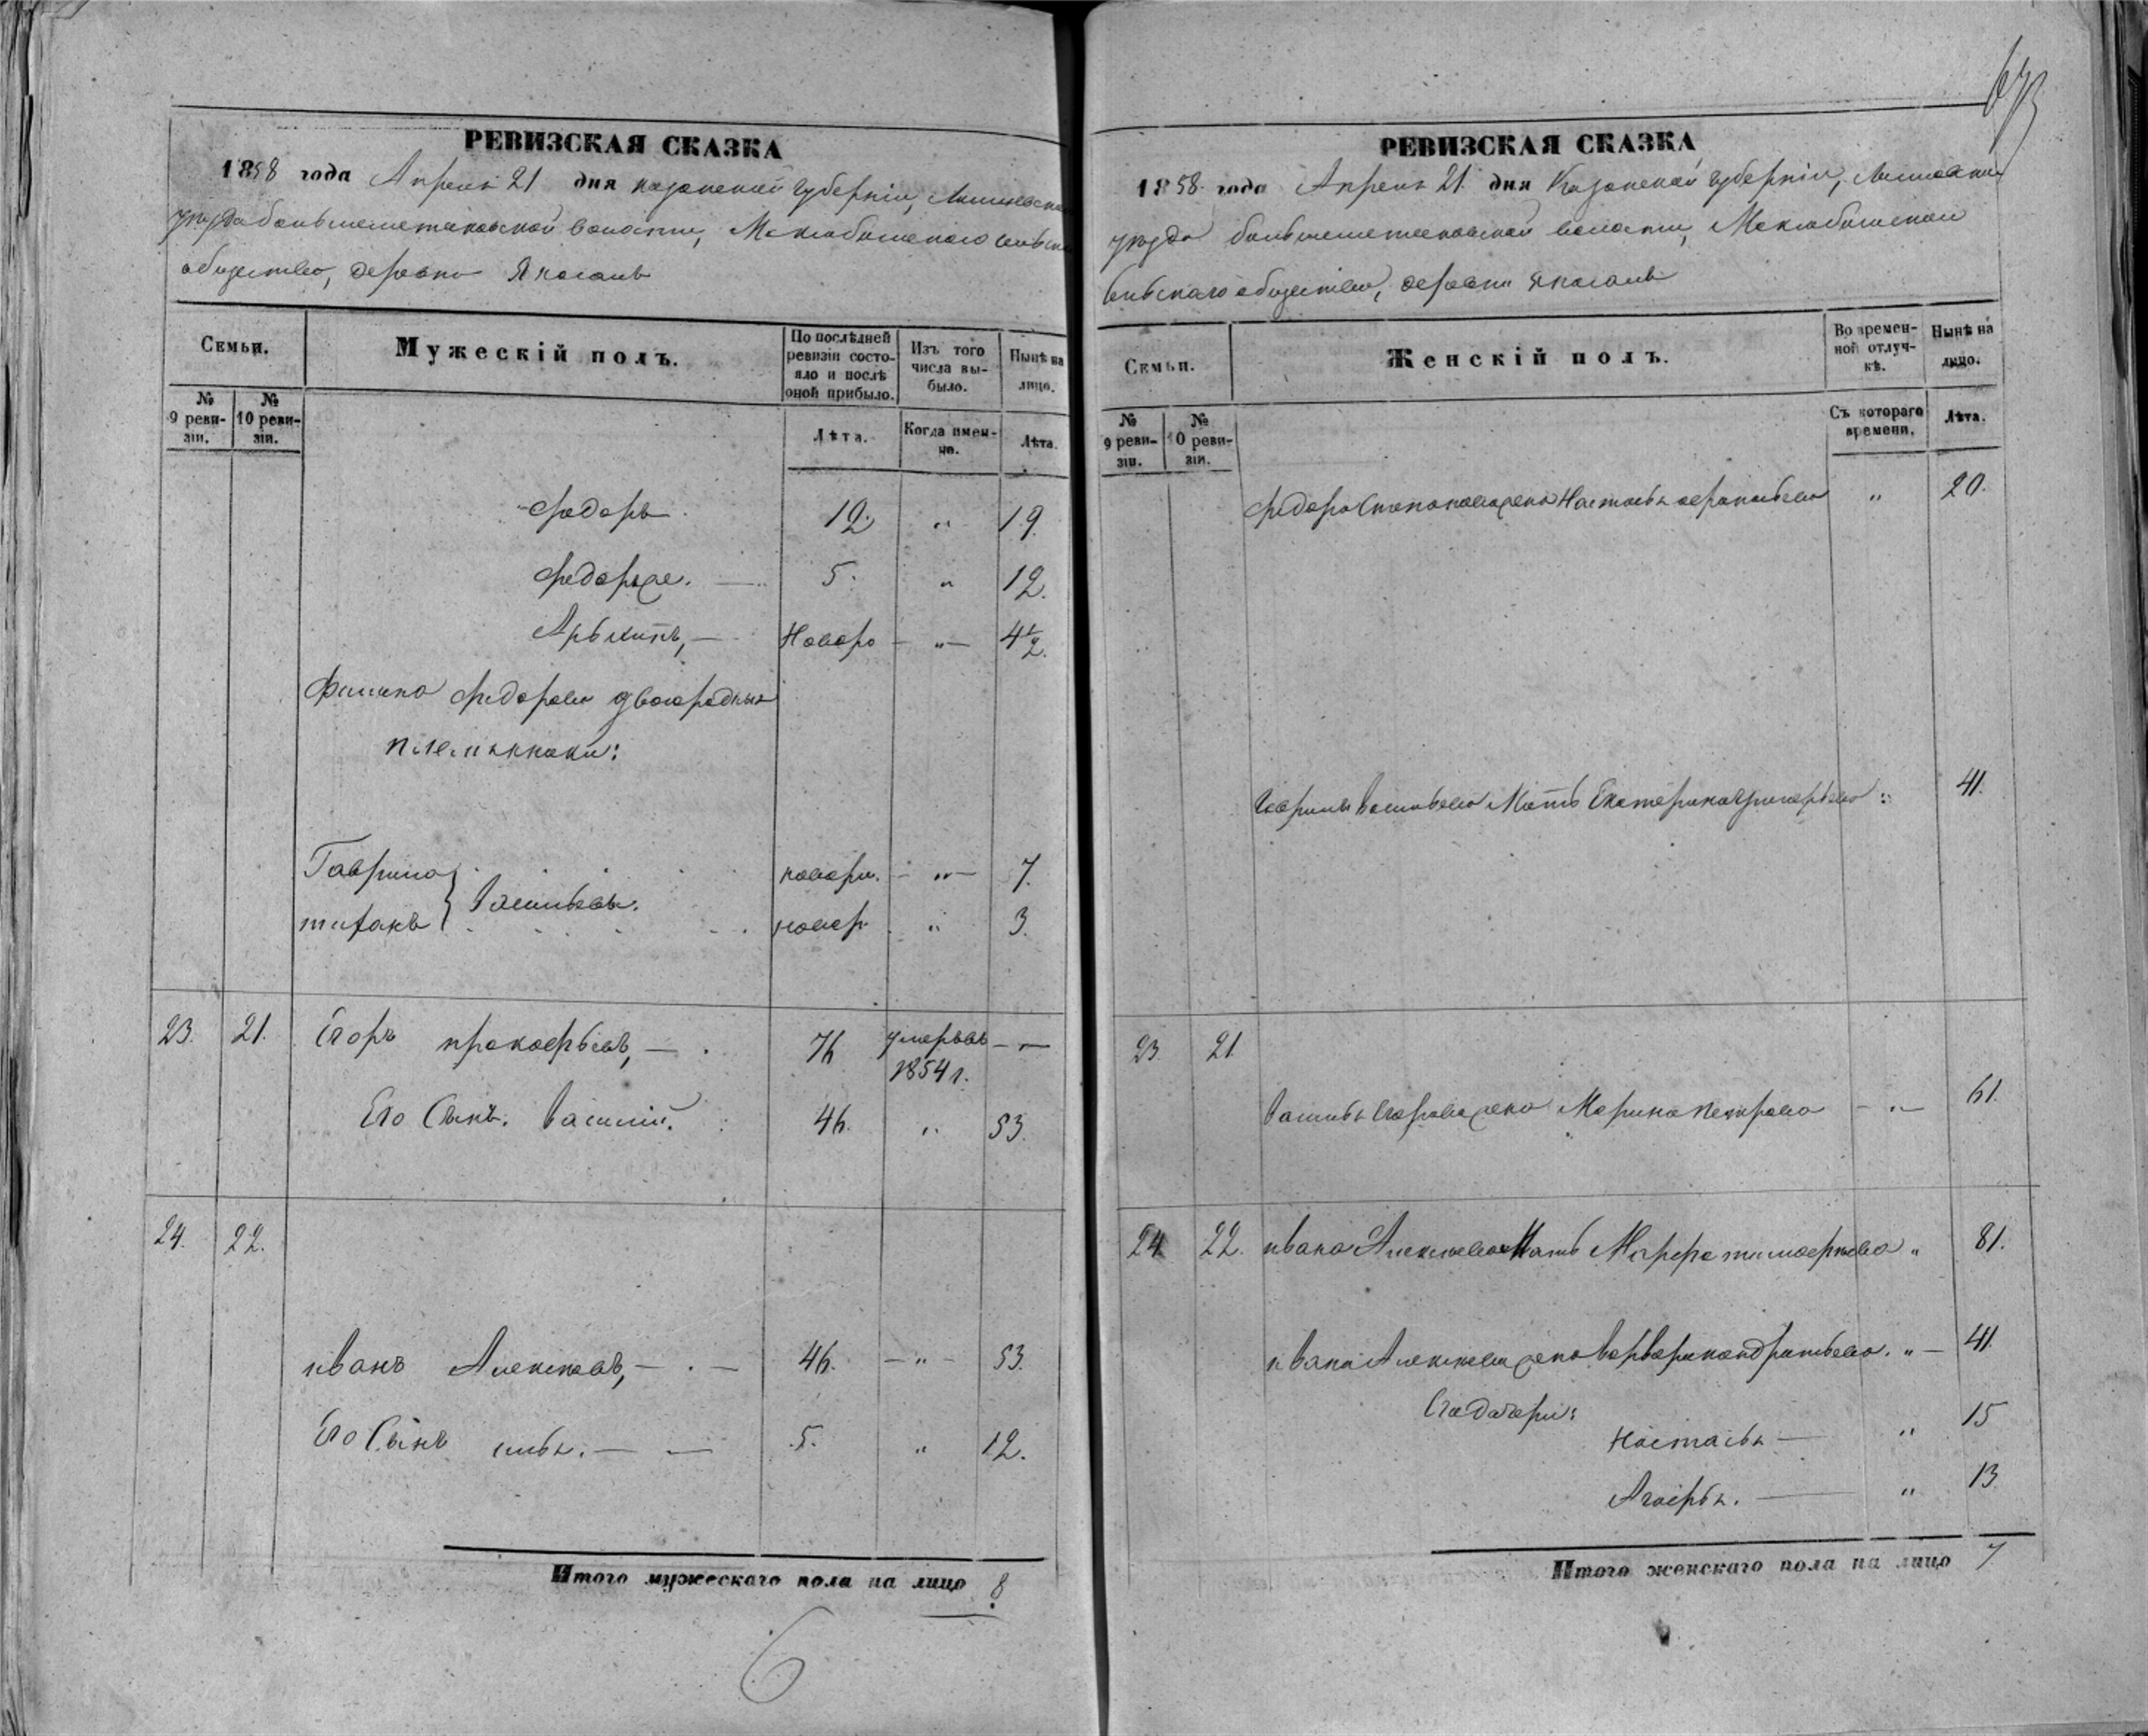 673
РЕВИЗСКАЯ СКАЗКА
1858 года Апреля 21 дня Казанской губерніи,
уезда волости,
общества, деревни
Семьи.
Мужескій полъ.
По послѣдней ревизіи состояло и послѣ оной прибыло.
Изъ того числа выбыло.
Нынѣ на лицо.
№ 9 ревизіи.
№ 10 ревизіи.
Лѣта.
Когда именно.
Лѣта.
Федоръ 12 " 19.
Федоръ же. — 5. " 12.
Новоро — " — 4 1/2.
Федорова двоюродныя
племянники:
Гаврила новорж. — " — 7.
Васильевы.
новор " 3.
23. 21. Егоръ прокофьевъ, — 76 умеръ въ 1854 г. — —
Его Сынъ. Василій. 46. " 53.
24. 22.
иванъ Алексѣевъ, — . — 46. — " — 53.
Его Сынъ илья. — — 5. " 12.
Итого мужескаго пола на лицо 8
6
РЕВИЗСКАЯ СКАЗКА
1858 года Апреля 21 дня Казанской губерніи,
уезда волости,
сельскаго общества, деревни
Семьи.
Женскій полъ.
Во временной отлучкѣ.
Нынѣ на лицо.
№ 9 ревизіи.
№ 10 ревизіи.
Съ котораго времени.
Лѣта.
Федора Степанова жена Настасья " 20.
Гаврилы Васильева Мать Екатерина григорьева " 41.
23. 21.
Василья Егорова жена Марина петрова — " — 61.
24 22. ивана Алексѣева Мать Марфа тимофѣева " 81.
ивана Алексѣева жена варвара кандратьева. " — 41.
Его дочери:
Настасья — " 15
Агафья. — " 13
Итого женскаго пола на лицо 7